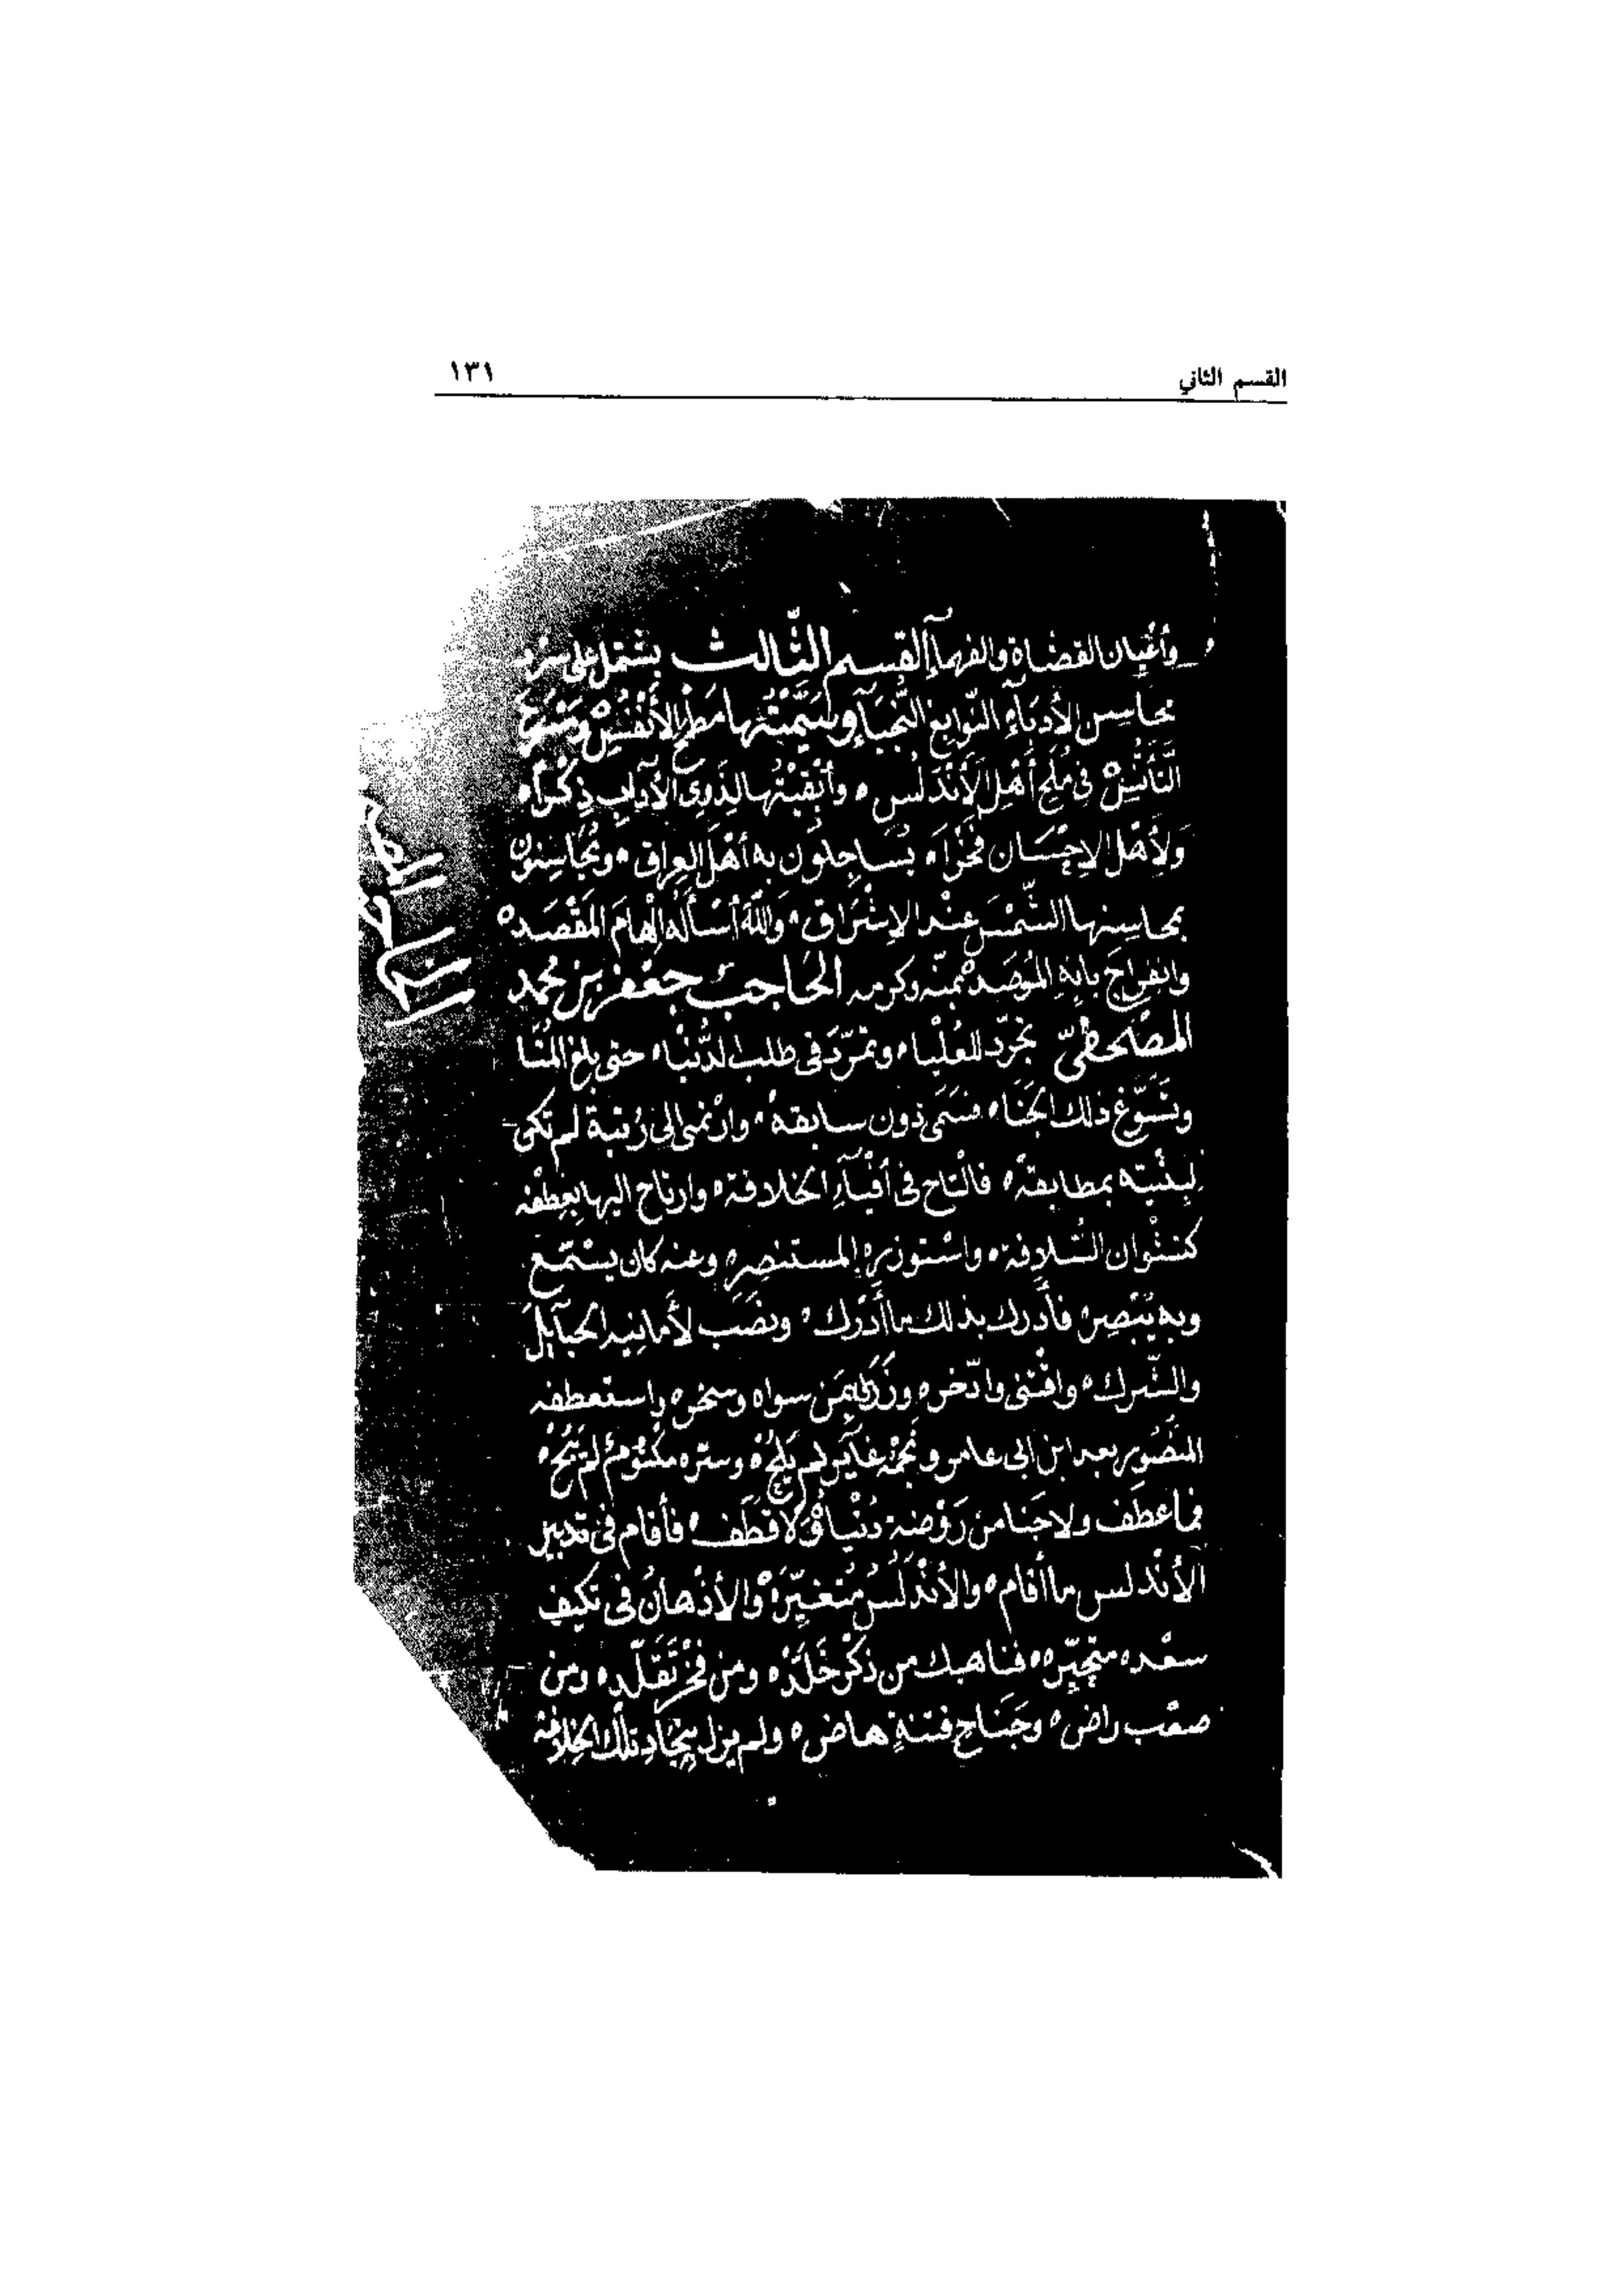 القسم الثاني
١٣١
وأعْيان القضاة والفهمآء القسم الثّالث يشتمل على سرد
محاسن الأدبآء النّوابغ النُّجبآء وسمّيْتُها مَطمح الأنْفُسْ ومَسْرح
التَّأنُّسْ فى مُلَح أهْل الأنْدَلُس ه وأبْقيْتُها لذَوِى الآداب ذِكْراً ه
ولأهْل الإحْسَان فَخْراً ه يُسَاجِلُون به أهْلَ العِراق ه ويُحَاسِنون
بمحاسِنها الشّمْسَ عنْد الإشْرَاق ه واللّهَ أسْألُه إلْهامَ المَقْصَد ه
وانفراجَ بابهِ المُوصَدْ بمنّه وكرمه الحَاجبُ جعْفر بن محمد
المصْحفىّ تجرّد للعُلْيا ه وتمرّدَ فى طلب الدُّنْيا ه حتى بلغ المُنَا
وتسَوّغ ذلك الجَنَا ه فسَمَى دون سابقهْ ه وارْتمى الى رُتبة لم تكن
لبِنْيته بمطابقهْ ه فالْتاح فى أفْيآءِ الخلافة ه وارتاح اليها بعِطفه
كنشْوان السُّلافة ه واسْتوزره المستنصِر ه وعنه كان يسْتمع
وبه يُبْصِر ه فأدرك بذلك ما أدْرَك ه ونَصَب لأمانيه الحبآيلَ
والشّرك ه واقْتنى وادّخر ه وزَرَى بمَن سواه وسخر ه واستعطفه
المنْصُور بعد ابن ابى عامر ونَجْمُه غآير لم يَلُحْ ه وسرّه مكْتُوم لم يَبُحْ ه
فما عطَف ولا جَنَا من رَوْضة دُنْياهُ ولا قَطَف ه فأقام فى تدبير
الأنْدلس ما أقام ه والأنْدَلُسُ مُتغيّرَهْ والأذْهانُ فى تكيف
سعْده متحيّره ه فناهيك من ذكْر خَلّدَهْ ه ومن فخْر تقَلّده ومن
صعْب راض ه وجَنَاح فتنةٍ هاض ه ولم يزل بنِجَادِ تلك الخِلافة
الحاجب المصحفى